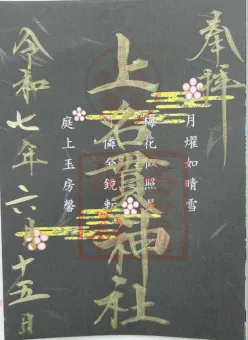 奉拝
月燿如晴雪
梅花似照星
上名貫神社
憐金鏡転
庭上玉房馨
令和七年六月十五日